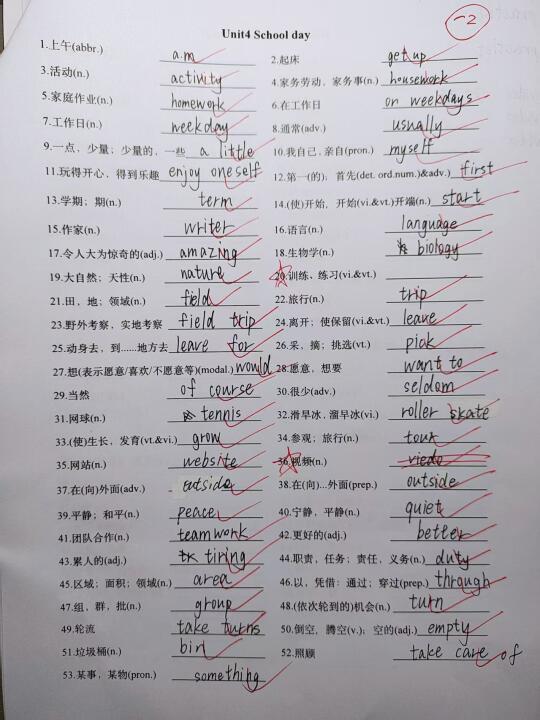 -2
Unit4 School day
1.上午(abbr.) a.m 2.起床 get up
3.活动(n.) activity 4.家务劳动，家务事(n.) housework
5.家庭作业(n.) homework 6.在工作日 on weekdays
7.工作日(n.) weekday 8.通常(adv.) usually
9.一点，少量；少量的，一些 a little 10.我自己,亲自(pron.) myself
11.玩得开心，得到乐趣 enjoy oneself 12.第一(的)；首先(det. ord.num.)&adv.) first
13.学期；期(n.) term 14.(使)开始，开始(vi.&vt.)开端(n.) start
15.作家(n.) writer 16.语言(n.) language
17.令人大为惊奇的(adj.) amazing 18.生物学(n.) biology
19.大自然；天性(n.) nature 20.训练、练习(vi.&vt.)
21.田，地；领域(n.) field 22.旅行(n.) trip
23.野外考察，实地考察 field trip 24.离开；使保留(vi.&vt.) leave
25.动身去，到……地方去 leave for 26.采，摘；挑选(vt.) pick
27.想(表示愿意/喜欢/不愿意等)(modal.) would 28.愿意，想要 want to
29.当然 of course 30.很少(adv.) seldom
31.网球(n.) tennis 32.滑旱冰,溜旱冰(vi.) roller skate
33.(使)生长，发育(vt.&vi.) grow 34.参观；旅行(n.) tour
35.网站(n.) website 36.视频(n.) viedo
37.在(向)外面(adv.) outside 38.在(向)...外面(prep.) outside
39.平静；和平(n.) peace 40.宁静，平静(n.) quiet
41.团队合作(n.) teamwork 42.更好的(adj.) better
43.累人的(adj.) tiring 44.职责，任务；责任，义务(n.) duty
45.区域；面积；领域(n.) area 46.以，凭借；通过；穿过(prep.) through
47.组，群，批(n.) group 48.(依次轮到的)机会(n.) turn
49.轮流 take turns 50.倒空，腾空(v.)；空的(adj.) empty
51.垃圾桶(n.) bin 52.照顾 take care of
53.某事，某物(pron.) something